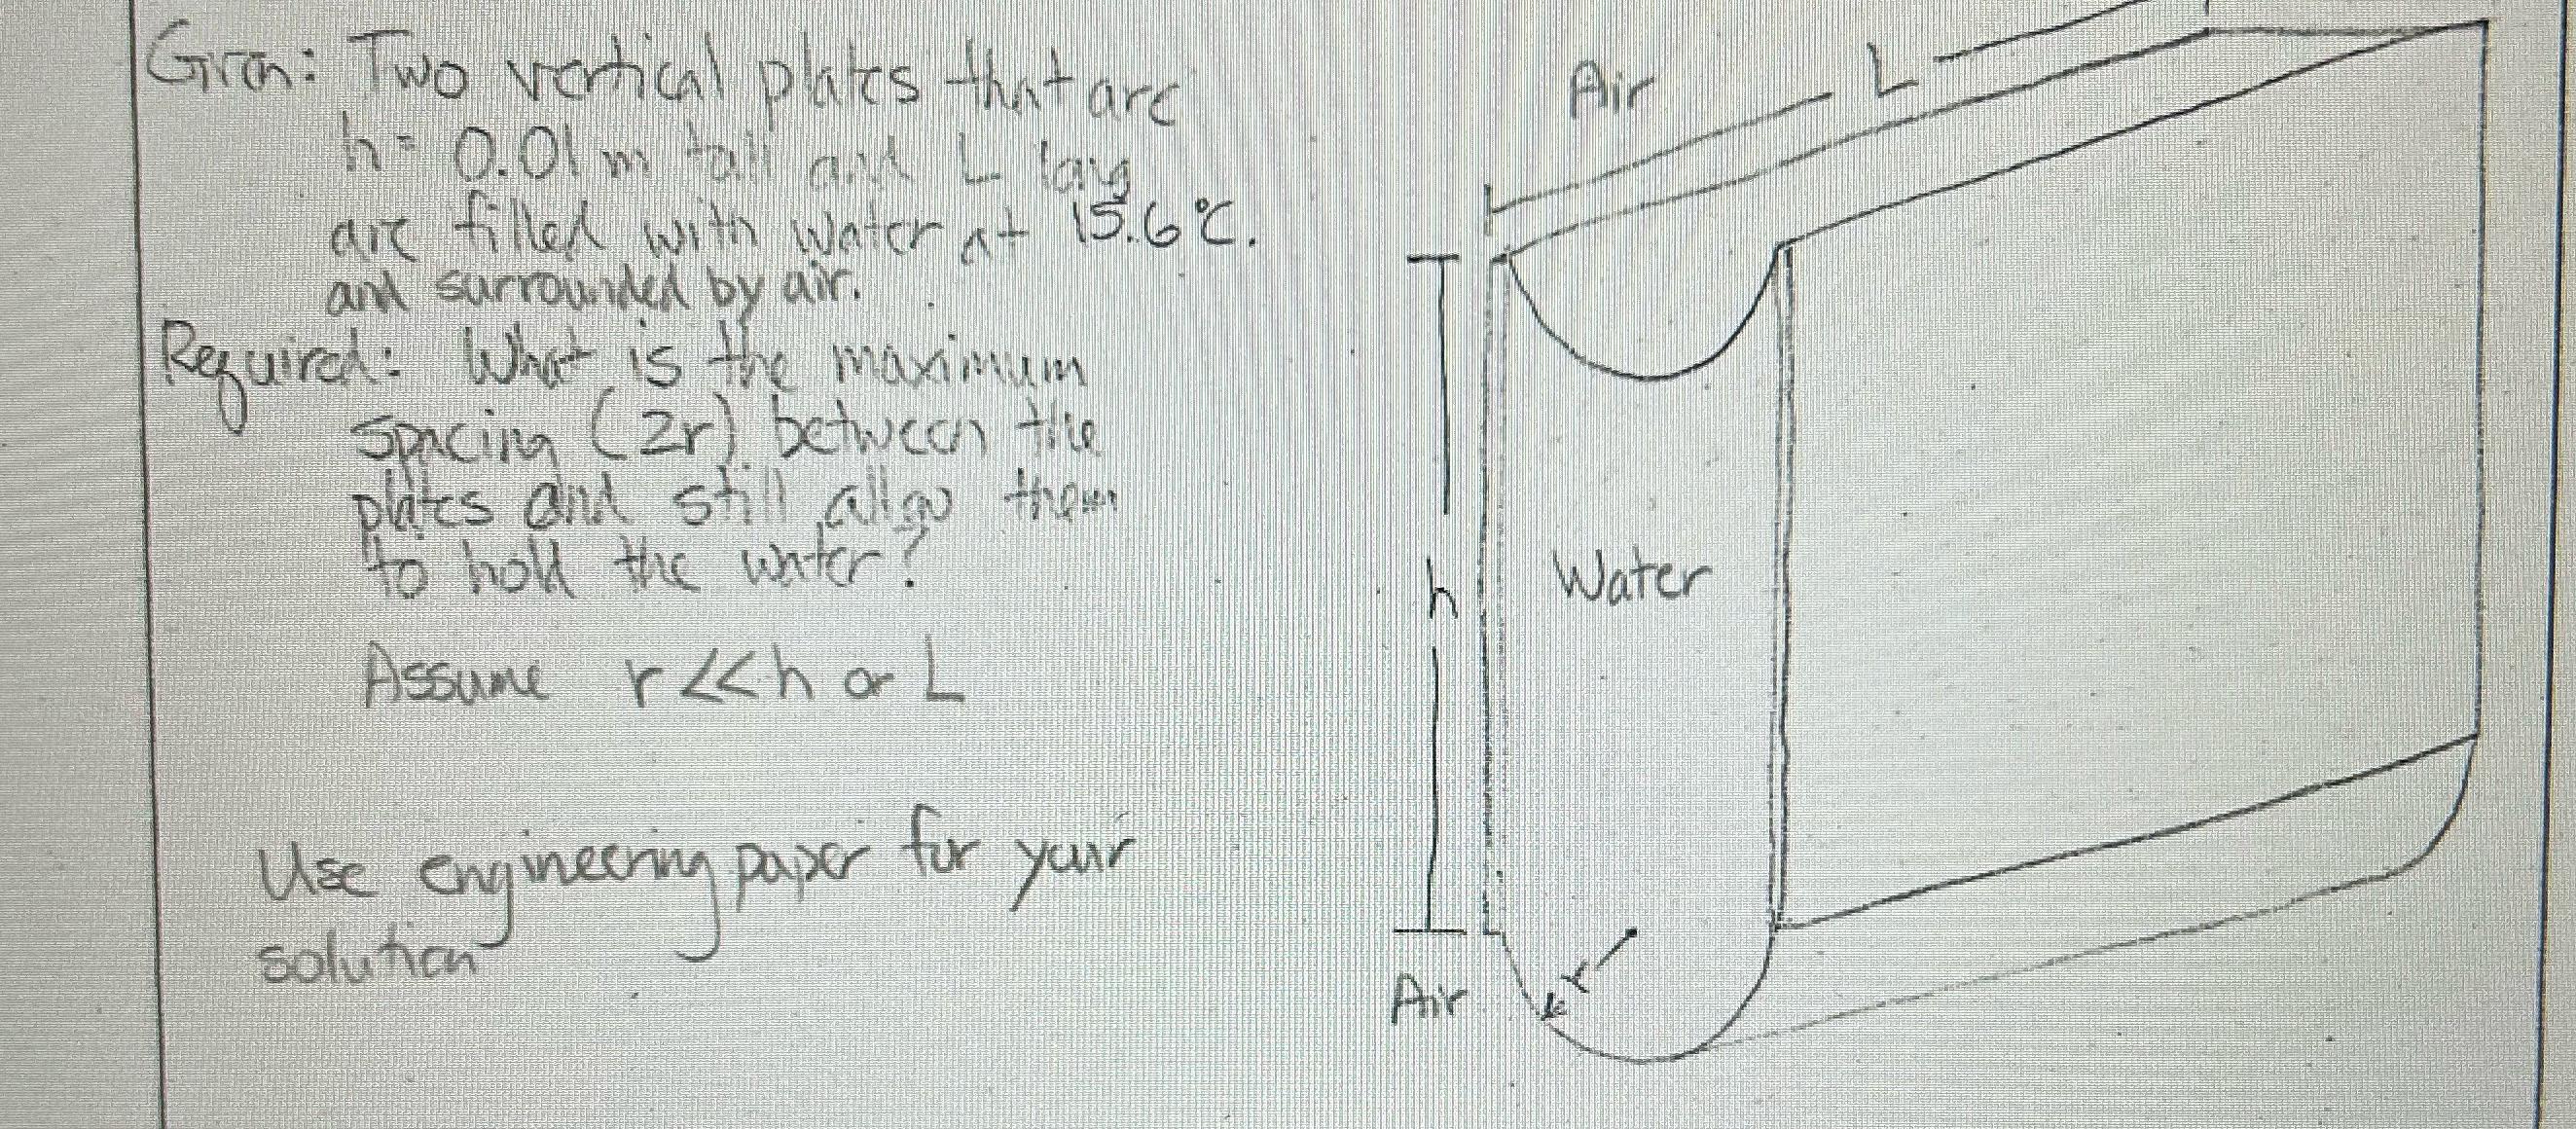 Given: Two vertical plates that are
h = 0.01 m tall and L long
are filled with water at 15.6°C.
and surrounded by air.
Required: What is the maximum
spacing (2r) between the
plates and still allow them
to hold the water?
Assume r << h or L
Use engineering paper for your
solution
Air
L
h
Water
Air
r